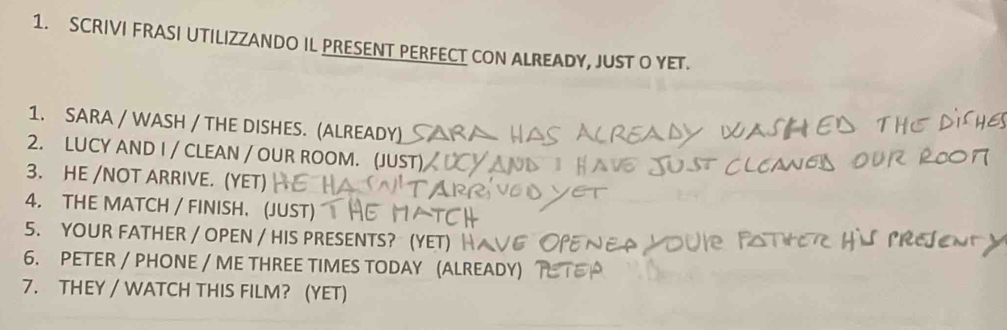 1. SCRIVI FRASI UTILIZZANDO IL PRESENT PERFECT CON ALREADY, JUST O YET.
1. SARA / WASH / THE DISHES. (ALREADY) SARA HAS ALREADY WASHED THE DISHES
2. LUCY AND I / CLEAN / OUR ROOM. (JUST) LUCY AND I HAVE JUST CLEANED OUR ROOM
3. HE /NOT ARRIVE. (YET) HE HASN'T ARRIVED YET
4. THE MATCH / FINISH. (JUST) THE MATCH
5. YOUR FATHER / OPEN / HIS PRESENTS? (YET) HAVE OPENED YOUR FATHER HIS PRESENT Y
6. PETER / PHONE / ME THREE TIMES TODAY (ALREADY) PETER
7. THEY / WATCH THIS FILM? (YET)